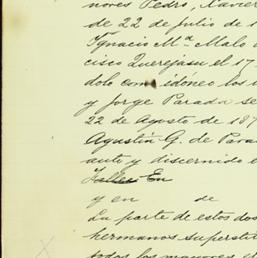 noves Pedro, Xavier
de 22 de Julio de 1
Ygnacio Mª Malo
cisco Querejasu el 17
dolo como idóneo los
y Jorge Parada se
22 de Agosto de 187
Agustín G. de Para
ante y discernido
y en de
La parte de estos dos
hermanos superstit
todos los mayores d